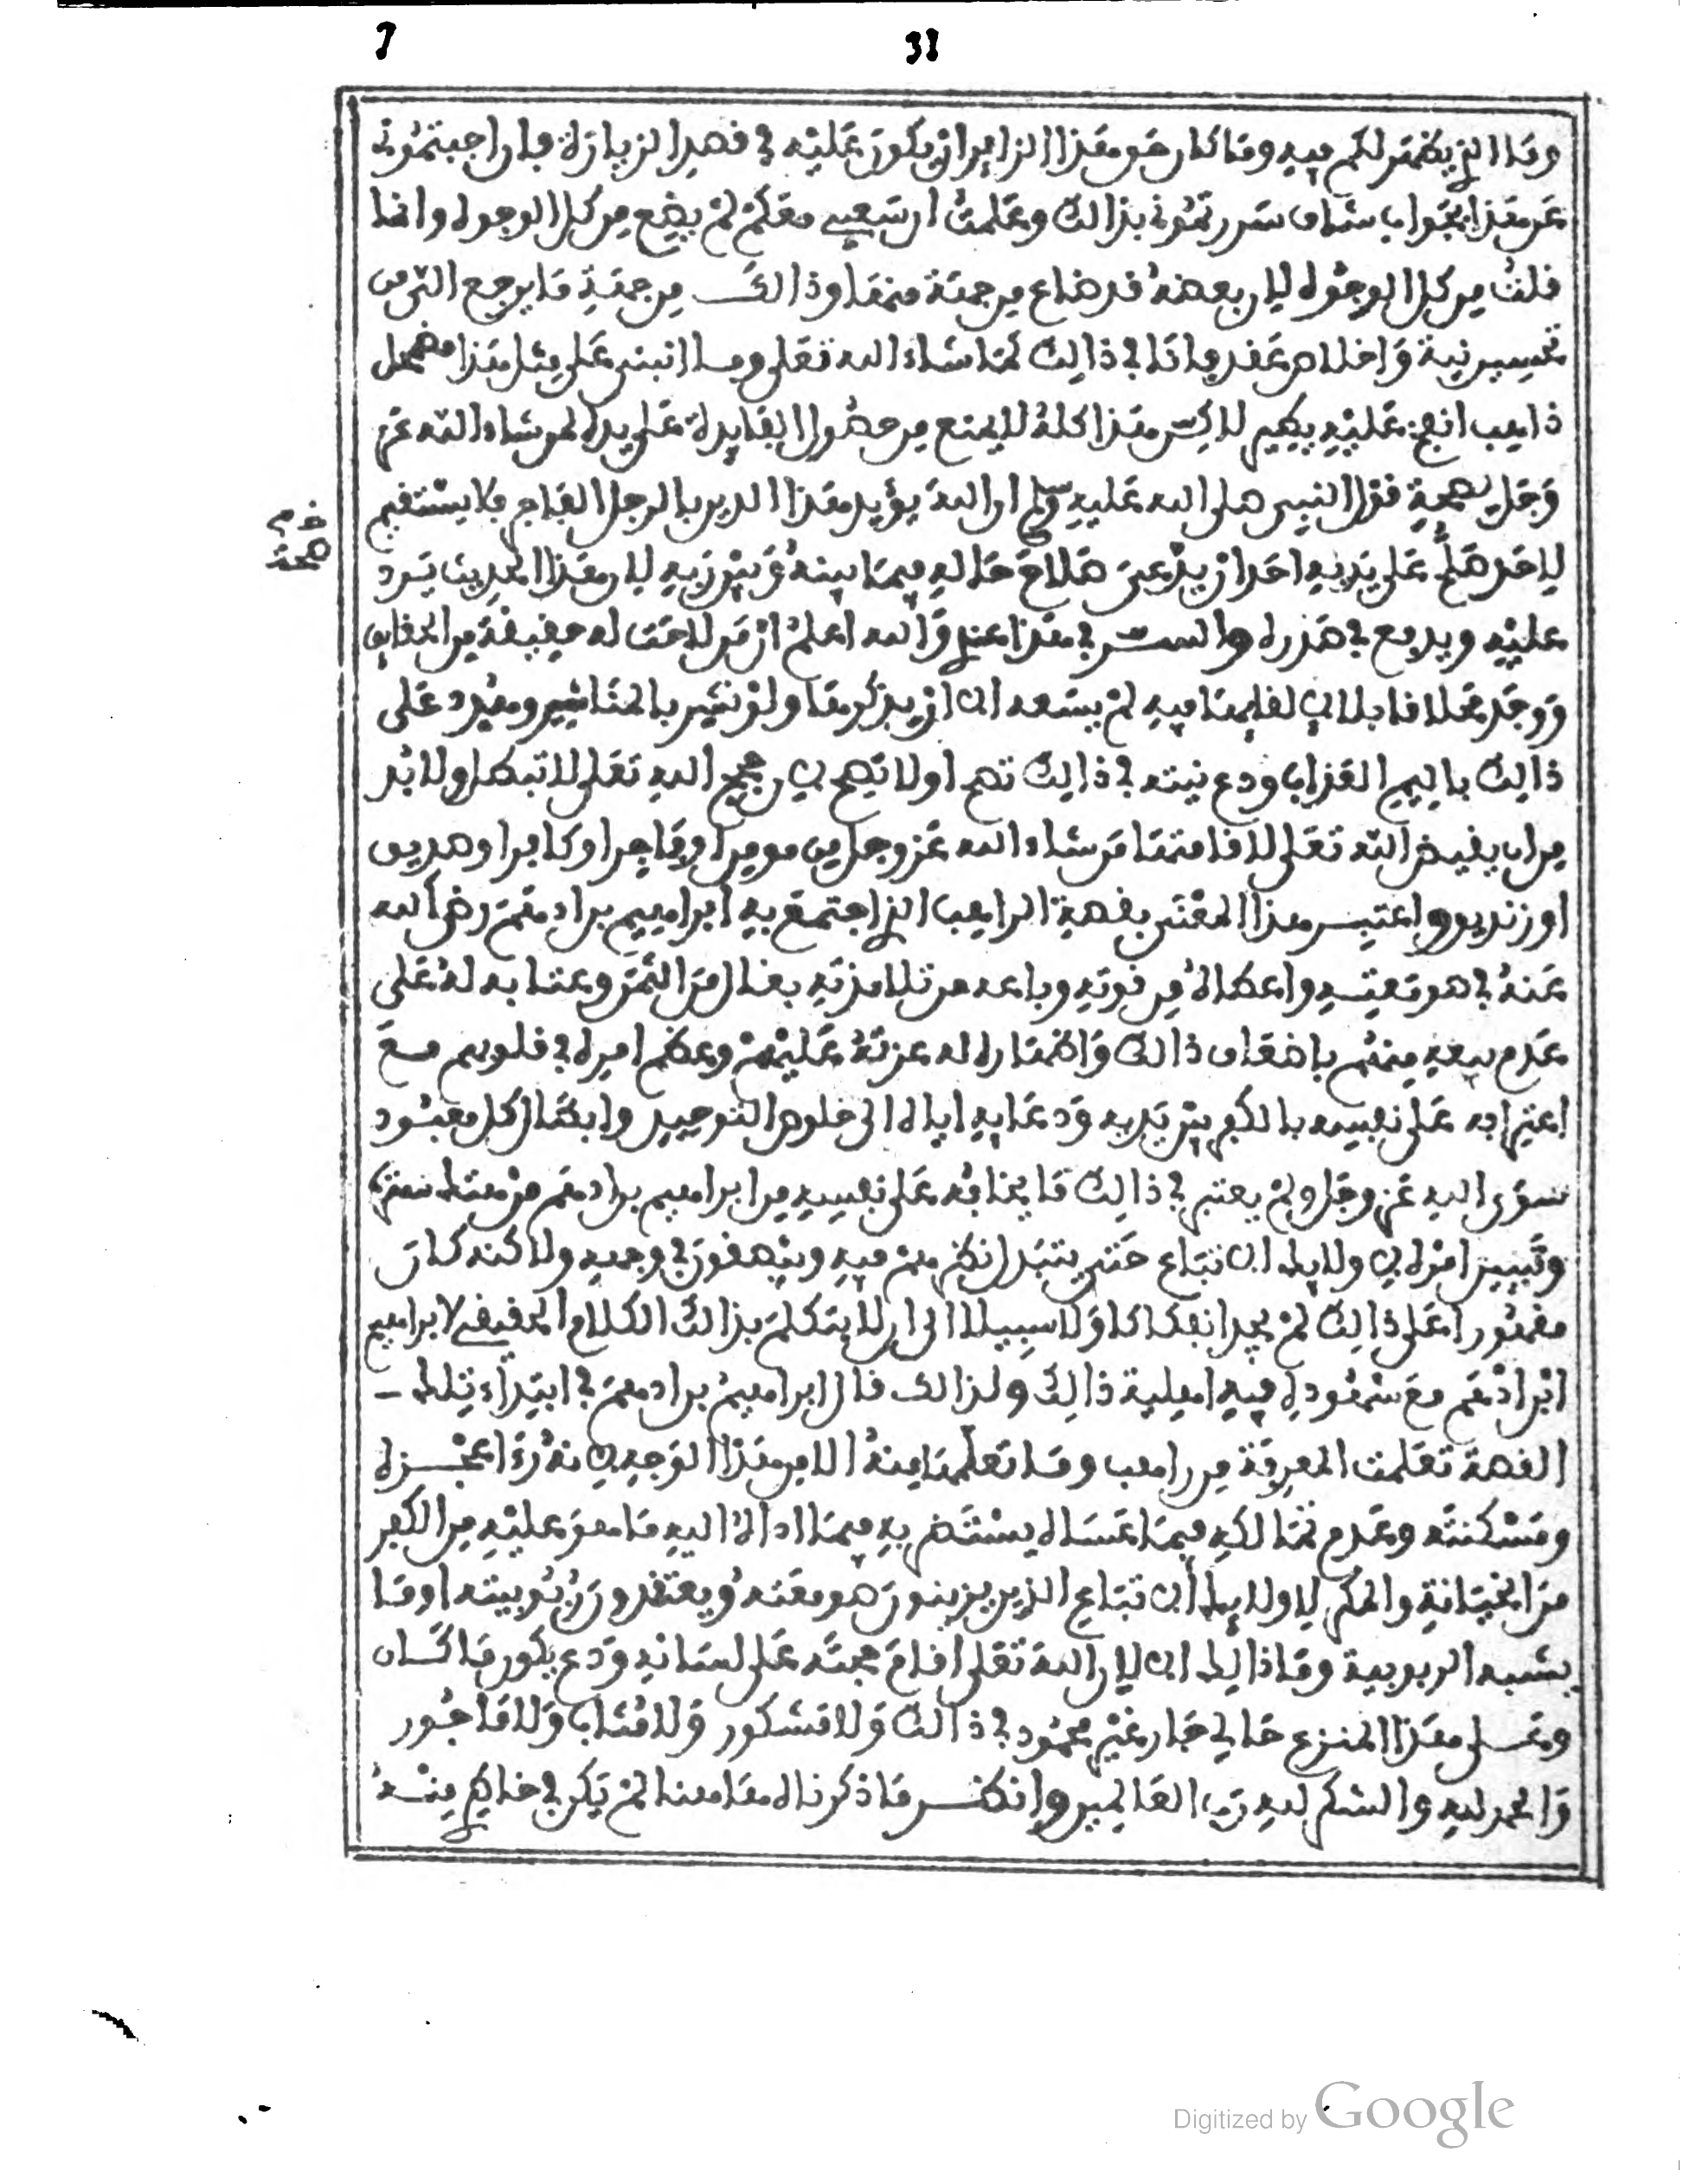 7 31
وما الذي يظهر لكم فيه وما كان حق هذا الزاير ان يكون عليه في قصد الزيارة فان اجبتموني
عن هذا بجواب شاف سررتموني بذالك وعلمت ان سعيي معكم لم يضع من كل الوجوه وانما
قلت من كل الوجوه لان بعضه قد ضاع من جهة منها وذالك من جهة ما يرجع الي من
تحسين نية واخلاص عقد وانا في ذالك كما شاء الله تعلى وما انبنى على مثل هذا مضمحل
ذاهب لاكن هذا كله لا يمنع من حصول الفايدة على يدي لمن شاء الله عز
وجل قال النبي صلى الله عليه وسلم ان الله يؤيد هذا الدين بالرجل الفاجر فلا يستقيم
لاحد صلح على يديه احد ان يدعي صلاح حاله فيما بينه وبين ربه لان هذا الحديث يرد
عليه ويدفع في صدره والسر في هذا عندي والله اعلم ان من لاحت له حقيقة من الحقايق
ووجد محلا قابلا لالقايها فيه لم يسعه الا ان يذكرها ولو نشر بالمناشير وهدد على
ذالك باليم العذاب ودع نيته في ذالك تصح او لا تصح فحجج الله تعلى لا تبطل ولا بد
من ان يقيض الله تعلى لاقامتها من شاء الله عز وجل من مومن او فاجر او كافر او صديق
او زنديق واعتبر هذا المعنى بقصة الراهب الذي اجتمع به ابراهيم بن ادهم رضي الله
عنه في صومعته واعطاه من قوته وباعه من تلامذته بغال من الثمن وعتابه له على
عدم بيعه منهم باضعاف ذالك واظهاره له عزته عليهم وعظم امره في قلوبهم مع
اعترافه على نفسه بالكفر بين يديه ودعايه اياه الى خلوص التوحيد وابطال كل معبود
سوى الله عز وجل ولم يعتبر في ذالك ما يخافه على نفسه من ابراهيم بن ادهم من هتك ستره
وتبيين امره لاولايك الاتباع حتى يتبدل نظرهم فيه ويبصقون في وجهه ولاكنه كان
مقهورا على ذالك لم يجد انفكاكا ولا سبيلا الى ان لا يتكلم بذالك الكلام الحقيقي لابراهيم
ابن ادهم مع شهوده فيه اهلية ذالك ولذالك قال ابراهيم بن ادهم في ابتداء تلك
القصة تعلمت المعرفة من راهب وما تعلمها منه الا من هذا الوجه
ومسكنته وعدم تمالكه فيما عساه يستضر به فيما اداه اليه ما هو عليه من الكفر
من الخيانة والمكر لاولايك الاتباع الذين يزينون صومعته ويعتقدون ربوبيته او ما
يشبه الربوبية وما ذالك الا لان الله تعلى اقام حجته على لسانه ودع يكون ما كان
وعلى هذا المنزع حالي جار غير محمود في ذالك ولا مشكور ولا مثاب ولا ماجور
والحمد لله والشكر لله رب العالمين وانظر ما ذكرناه هاهنا لم يكن في خاطري منه
Digitized by Google